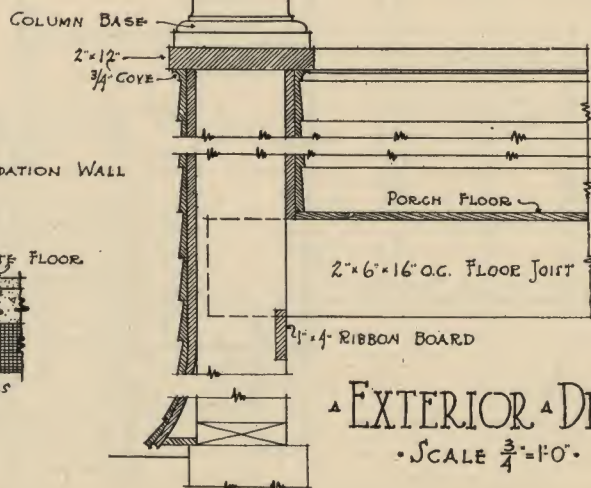 COLUMN BASE
2"×12"
3/4" COVE
DATION WALL
PORCH FLOOR
FLOOR
2"×6"×16" O.C. FLOOR JOIST
1"×4" RIBBON BOARD
S
EXTERIOR DE
• SCALE 3/4"=1'-0" •